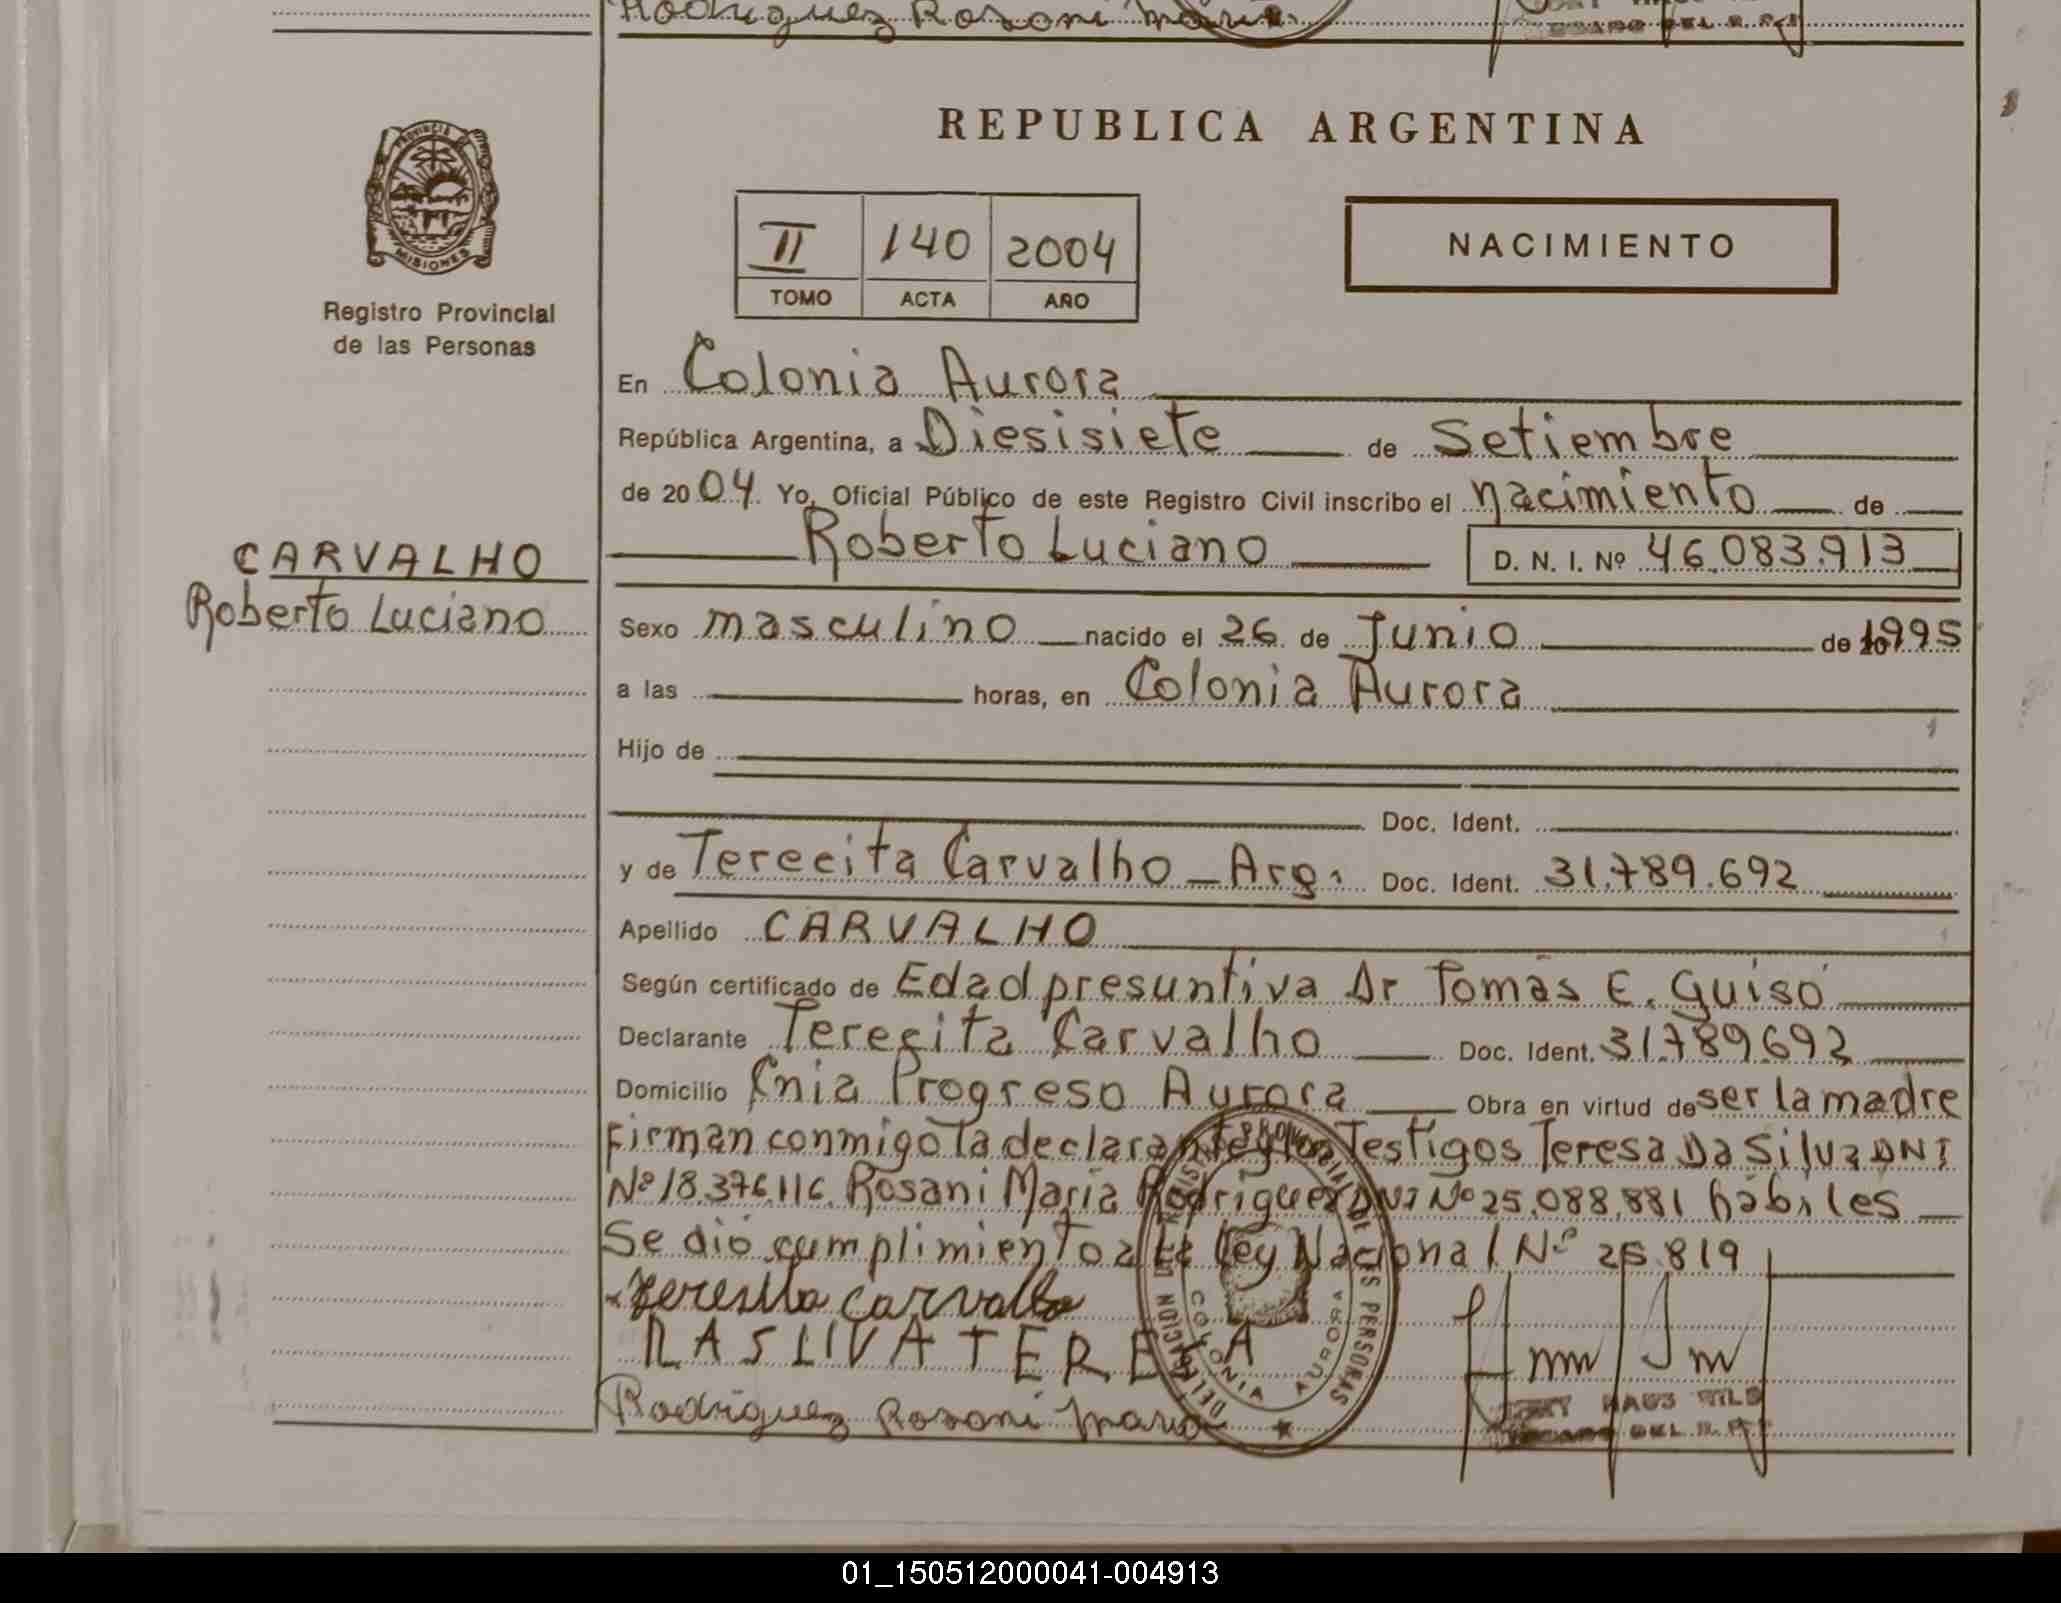 Rodriguez Rosani Maria
REPUBLICA ARGENTINA
PROVINCIA DE
MISIONES
Registro Provincial
de las Personas
II 140 2004
TOMO ACTA AÑO
NACIMIENTO
En Colonia Aurora
República Argentina, a Diesisiete de Setiembre
de 2004. Yo, Oficial Público de este Registro Civil inscribo el nacimiento de
Roberto Luciano D. N. I. Nº 46.083.913
CARVALHO
Roberto Luciano
Sexo masculino nacido el 26 de Junio de 20 1995
a las horas, en Colonia Aurora
Hijo de
Doc. Ident.
y de Terecita Carvalho - Arg. Doc. Ident. 31.789.692
Apellido CARVALHO
Según certificado de Edad presuntiva Dr Tomás E. Guisó
Declarante Terecita Carvalho Doc. Ident. 31.789.692
Domicilio Cnia Progreso Aurora Obra en virtud de ser la madre
Firman conmigo la declarante y los Testigos Teresa Da Silva DNI
Nº 18.376.116. Rosani Maria Rodriguez DNI Nº 25.088.881 hábiles
Se dió cumplimiento a la Ley Nacional Nº 25.819
Teresita carvalho
DASLIVATERE A
Rodriguez Rosani Maria
DELEGACION DEL REGISTRO PROVINCIAL DE LAS PERSONAS
COLONIA AURORA
01_150512000041-004913